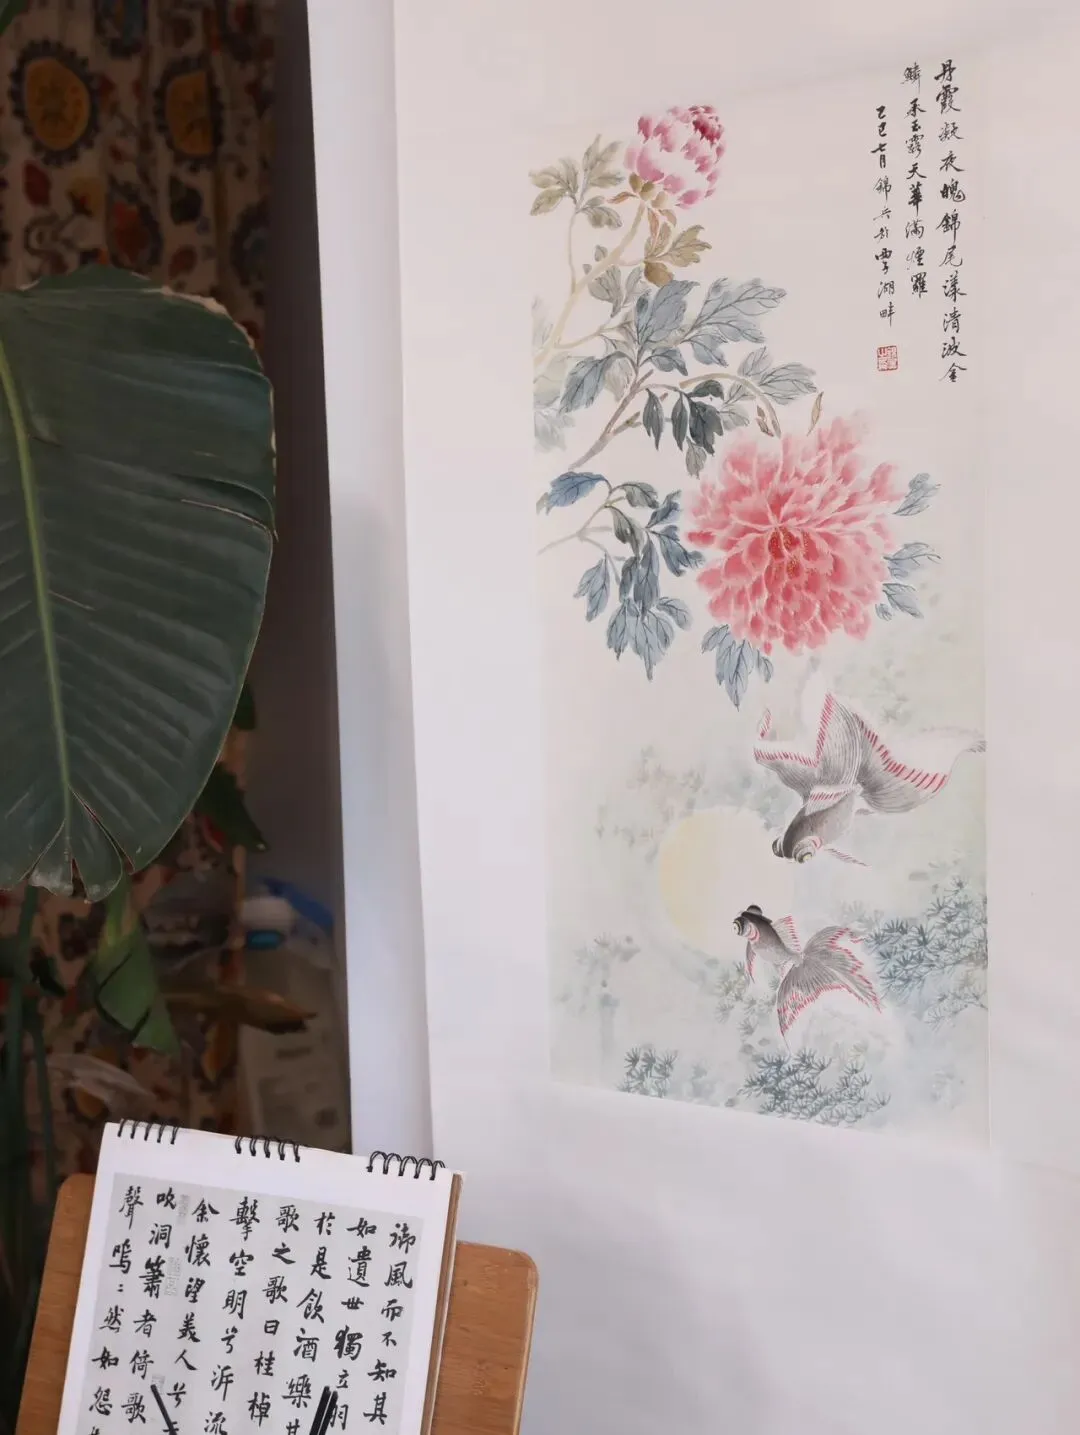 丹霞凝夜魄錦尾漾清波金
鱗承玉露天華滿煙羅
乙巳七月錦兵於西子湖畔
御風而不知其
如遺世獨立羽
於是飲酒樂
歌之歌曰桂棹
擊空明兮泝流
余懷望美人兮
吹洞簫者倚歌
聲嗚〻然如怨